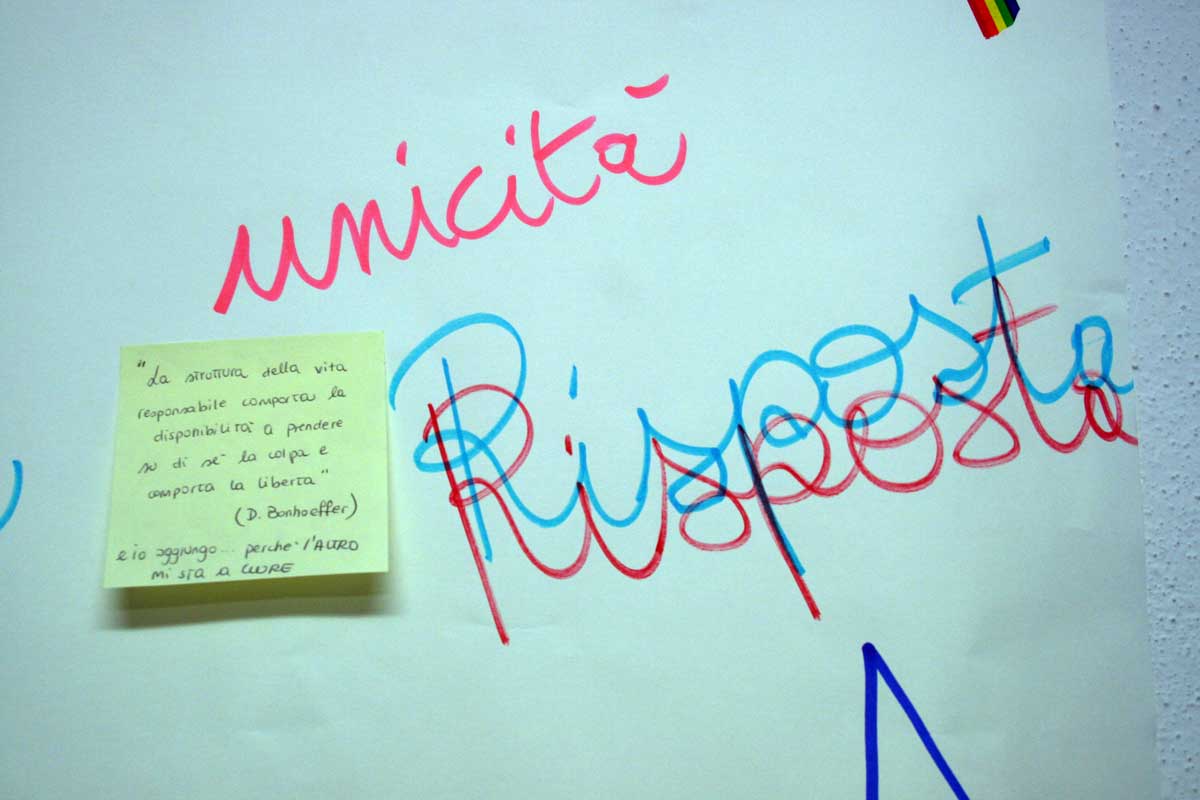 unicità
Risposta
"La struttura della vita
responsabile comporta la
disponibilità a prendere
su di sé la colpa e
comporta la libertà"
(D. Bonhoeffer)
e io aggiungo... perché l'ALTRO
mi sta a CUORE